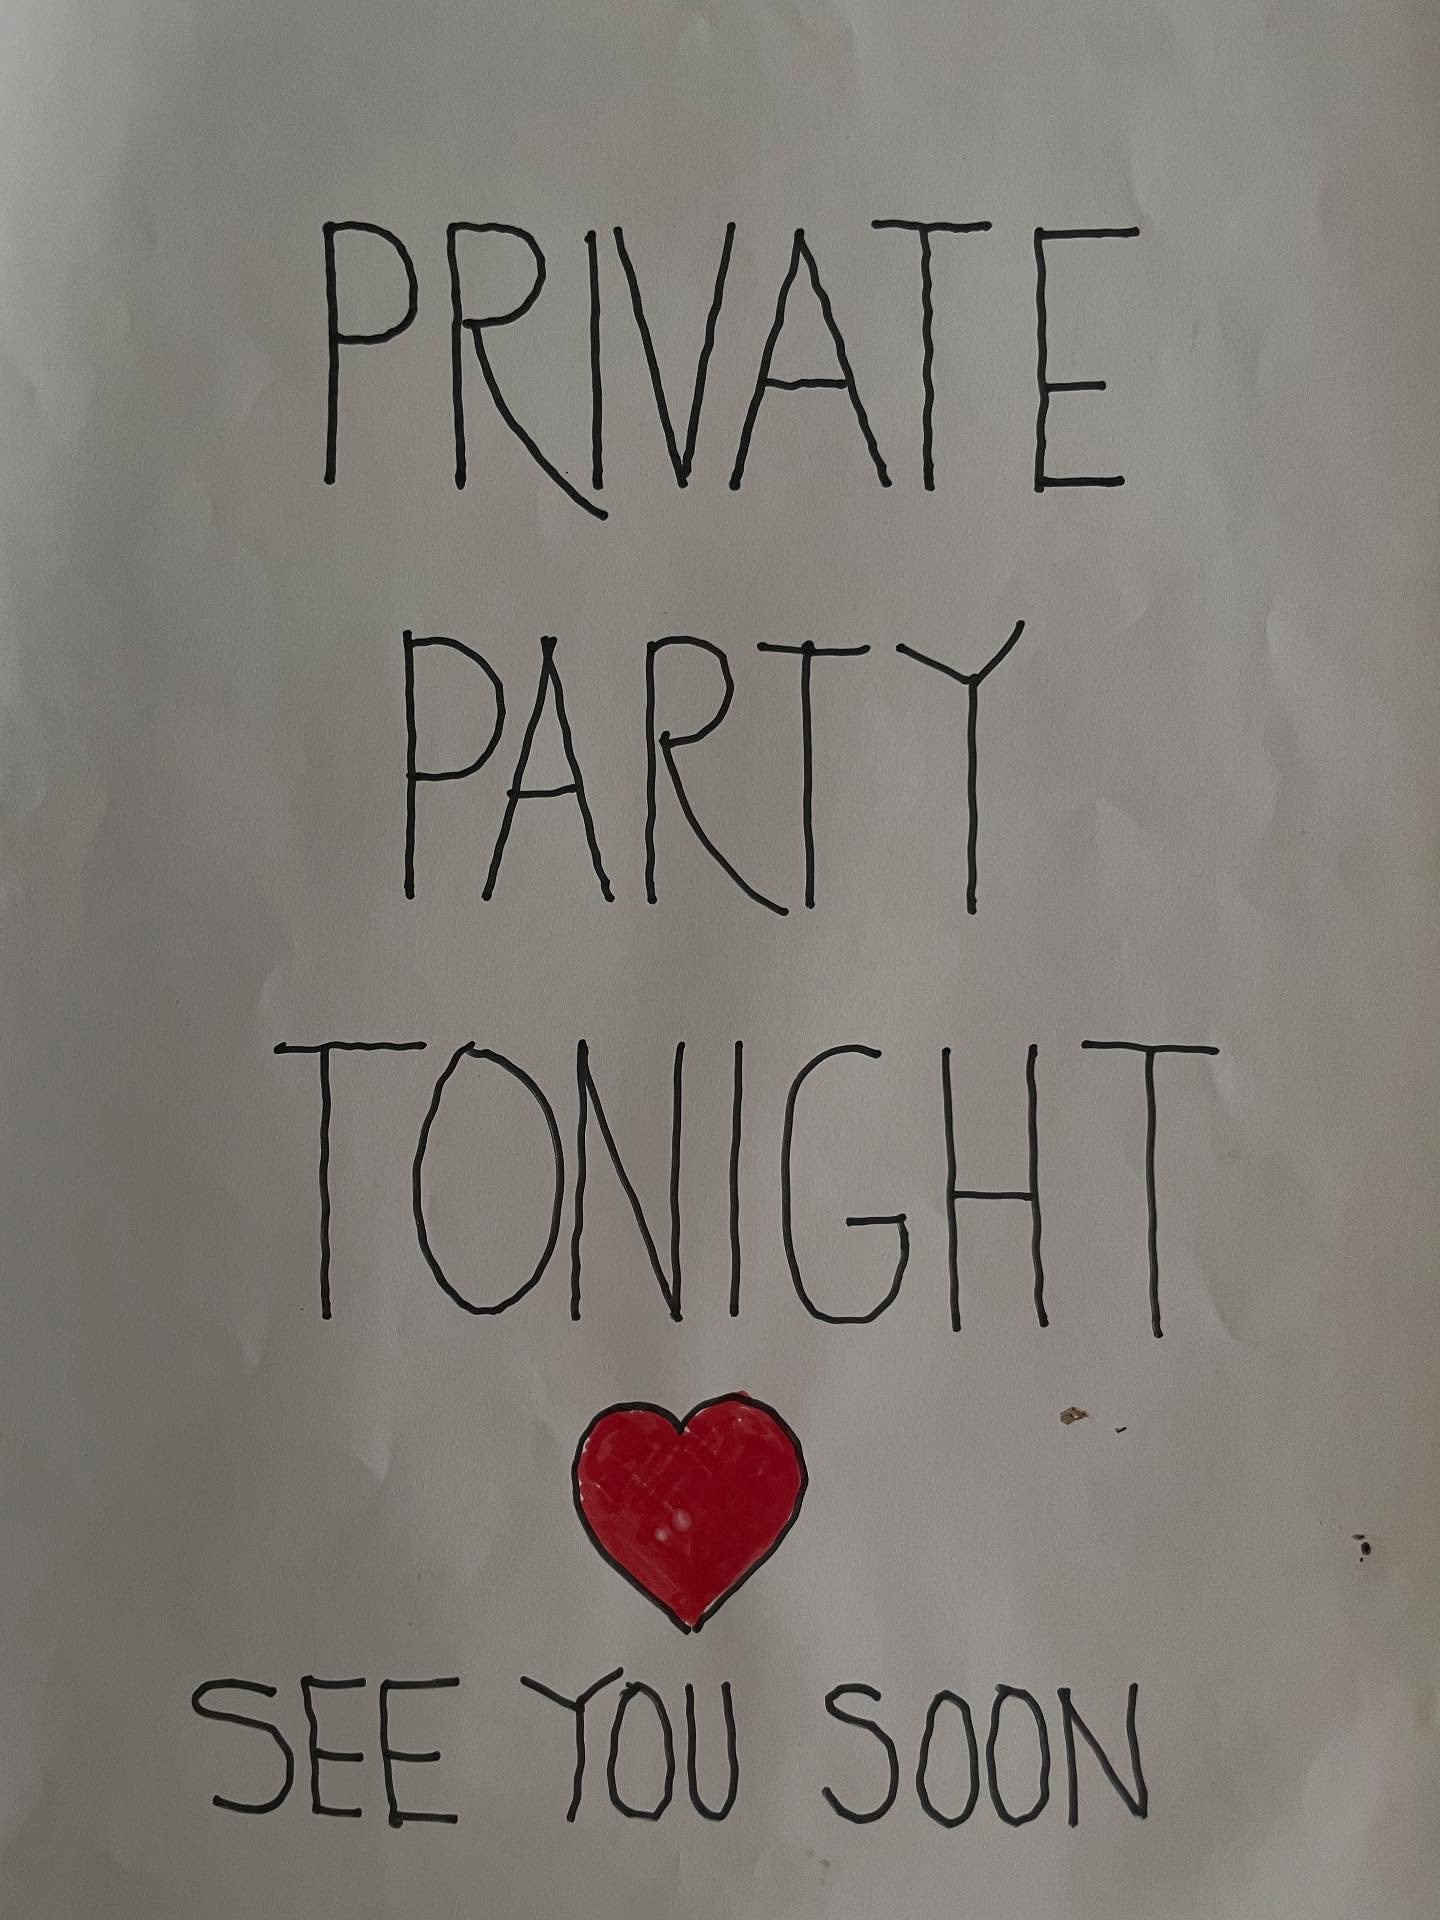 PRIVATE
PARTY
TONIGHT
SEE YOU SOON